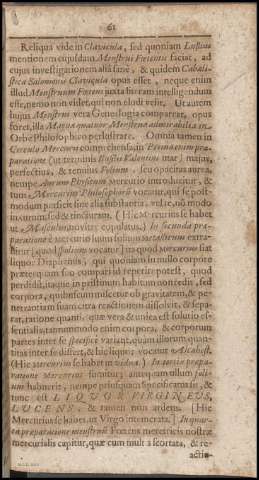 61
Reliqua vide in Clavicula, sed quoniam
mentionem cujusdam Menstrui Fœtentis faciat, ad
cujus investigationem aliâ sanè, & quidem Cabali-
stica Salomonis Clavicula opus esset, neque enim
illud Menstruum Fœtens juxta literam intelligendum
esse, nemo non videt, qui non elodi velit. Ut autem
hujus Menstrui vera Genealogia compareat, opus
foret, illa Magna quatuor Menstrua admirabilia ex
Orbe Philosophico perlustrare. Omnia tamen in
Mercurii comprehensa, in Prima enim præ-
paratione (ut terminis Basilii Valentini utar) majus,
perfectius, & tenuius Folium, seu opacitas aurea,
nempe Aurum Physicum Mercurio introducitur, &
tum Mercurium Philosophorũ vocatur, qui se post-
modum perficit sine aliâ substantiâ, vel re, nõ modo
in aurum sed & tincturam. (Hic Mercurius se habet
ut Masculus noviter copulatus.) In secunda præ-
paratione è Mercurio hujus folium extra-
hitur (quod spolium vocatur) ita quod Mercurius fiat
liquor Diaphanus, qui quoniam in nullo corpore
præterquam suo compari id reperire potest, quod
perdidit, itaque in pristinum habitum non redit, sed
corpora, quibuscum miscetur ob gravitatem, & pe-
netrantiam suam citra reactionem dissolvit, & sepa-
rat, ratione quanti, quæ vera & unica est solutio es-
sentialis, tantummodo enim corpora, & corporum
partes inter se specificè variant, quam illorum quan-
titas inter se differt, & hic liquor vocatur Alcahest.
(Hic Mercurius se habet ut vidua.) In tertia præpa-
ratione Mercurius sumitur, antequam ullum foli-
um habuerit, nempe priusquam Specificatus sit, &
tunc est LIQUOR VIRGINEUS,
LUCENS, & tamen non ardens. (Hic
Mercurius se habet, ut Virgo intemerata.) In quar-
ta præparatione menstruũ Fœtens meretricis nostræ
mercurialis capitur, quæ cum mult a scortata, & re-
actio-